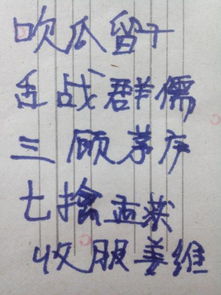 吹瓜留
舌战群儒
三顾茅庐
七擒孟获
收服姜维